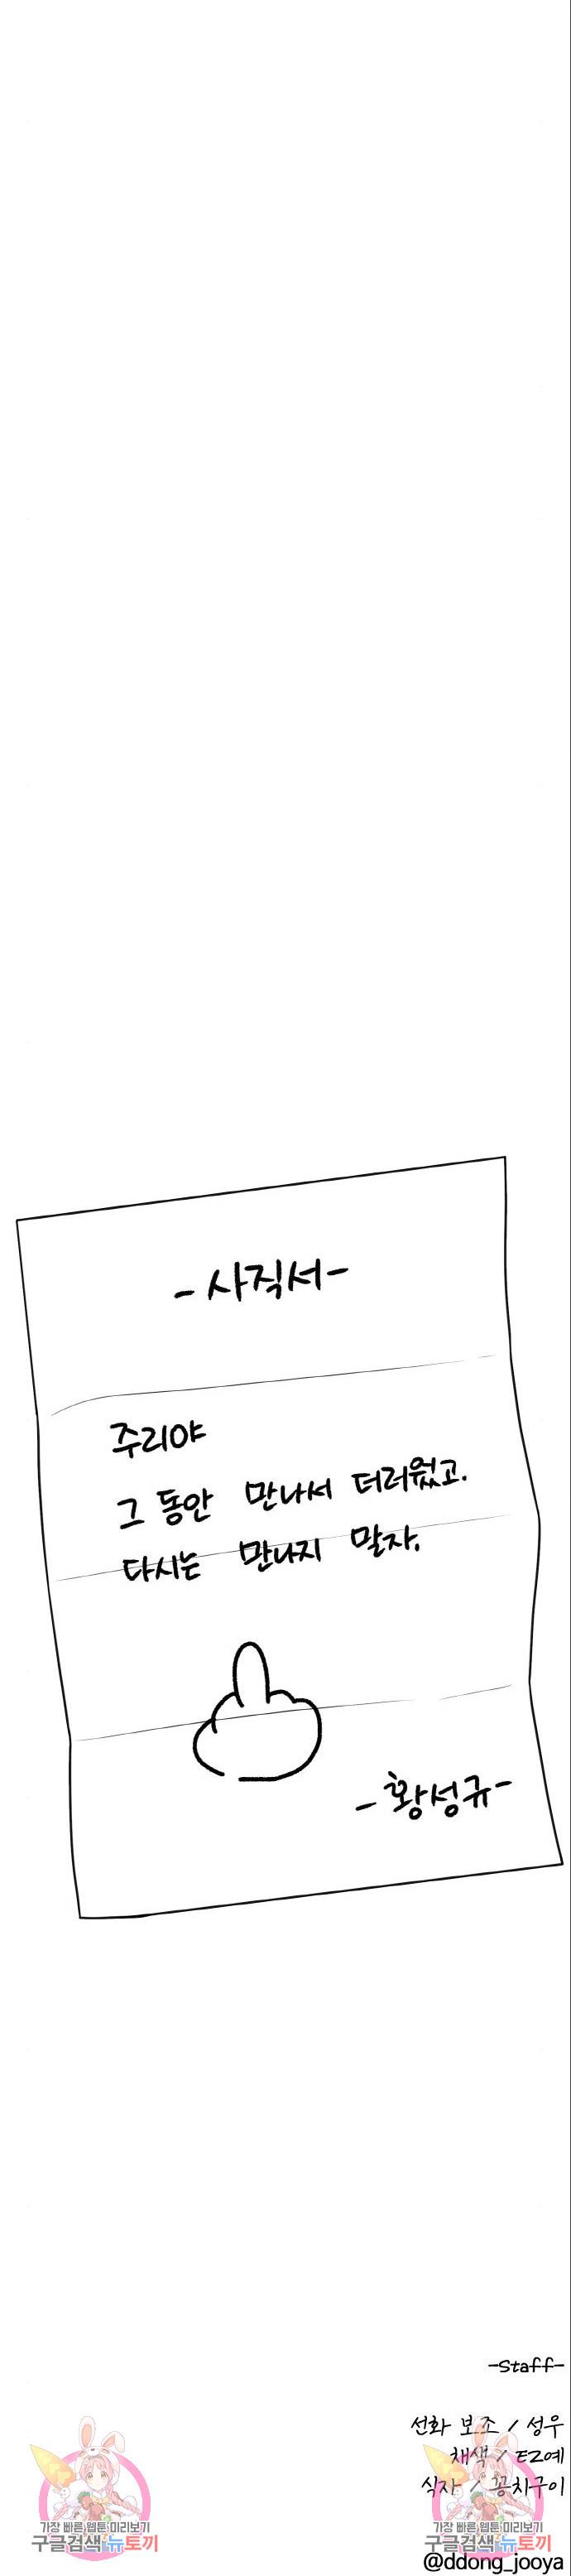 -사직서-
주리야
그 동안 만나서 더러웠고.
다시는 만나지 말자.
-황성규-
-Staff-
선화 보조 / 성우
채색 / EZ예
식자 / 꽁치구이
가장 빠른 웹툰 미리보기
구글검색 뉴토끼
가장 빠른 웹툰 미리보기
구글검색 뉴토끼
@ddong_jooya